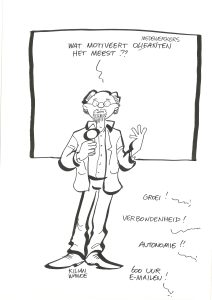 MEDEWERKERS
WAT MOTIVEERT OLIFANTEN
HET MEEST ??
GROEI !
VERBONDENHEID !
AUTONOMIE !!
KILIAN
WAWOE
600 UUR
E-MAILEN !